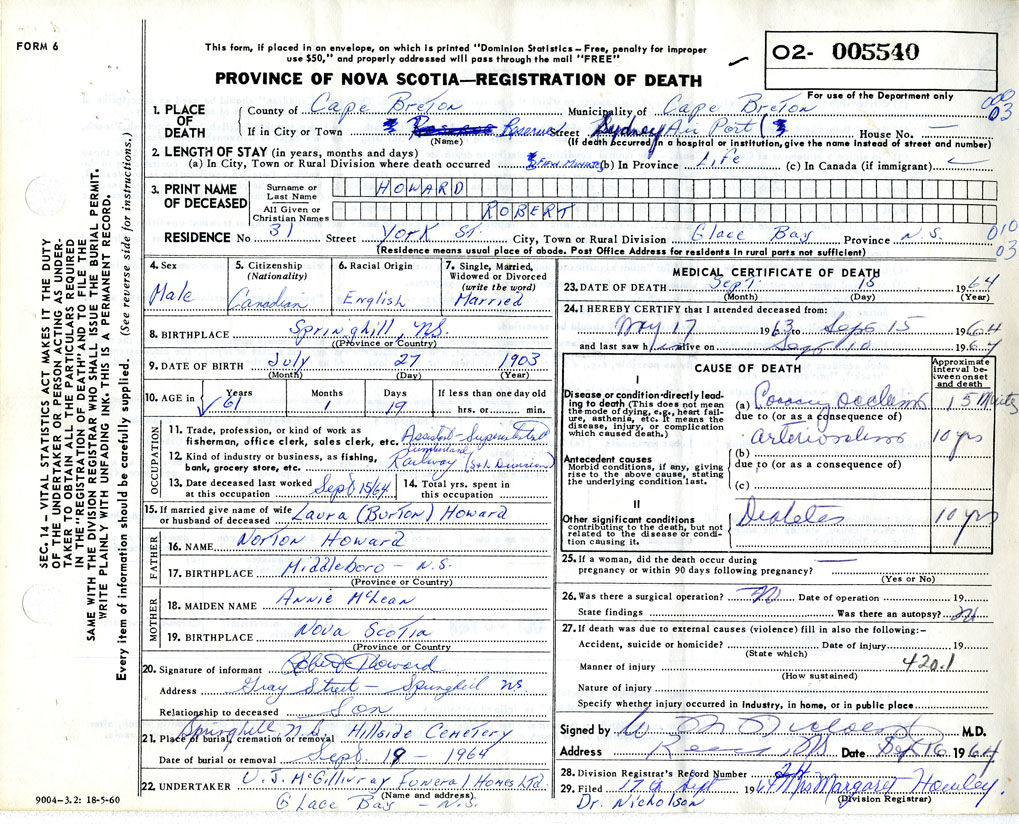 FORM 6
This form, if placed in an envelope, on which is printed "Dominion Statistics – Free, penalty for improper
use $50," and properly addressed will pass through the mail "FREE"
PROVINCE OF NOVA SCOTIA—REGISTRATION OF DEATH
O2- 005540
For use of the Department only
1. PLACE OF DEATH
County of Cape Breton Municipality of Cape Breton
000
03
If in City or Town Reserve Street Sydney Air Port House No. —
(Name) (If death occurred in a hospital or institution, give the name instead of street and number)
2. LENGTH OF STAY (in years, months and days)
(a) In City, Town or Rural Division where death occurred Few Minutes (b) In Province Life (c) In Canada (if immigrant)
3. PRINT NAME OF DECEASED
Surname or Last Name HOWARD
All Given or Christian Names ROBERT
RESIDENCE No 31 Street York St. City, Town or Rural Division Glace Bay Province N.S.
010
03
(Residence means usual place of abode. Post Office Address for residents in rural parts not sufficient)
4. Sex Male
5. Citizenship (Nationality) Canadian
6. Racial Origin English
7. Single, Married, Widowed or Divorced (write the word) Married
8. BIRTHPLACE Springhill, N.S.
(Province or Country)
9. DATE OF BIRTH July 27 1903
(Month) (Day) (Year)
10. AGE in Years 61 Months 1 Days 19 If less than one day old hrs. or min.
OCCUPATION
11. Trade, profession, or kind of work as
fisherman, office clerk, sales clerk, etc.
12. Kind of industry or business, as fishing, Cumberland
bank, grocery store, etc. Railway (S+L Division)
13. Date deceased last worked at this occupation Sept 15/64
14. Total yrs. spent in this occupation
15. If married give name of wife or husband of deceased Laura (Burton) Howard
FATHER
16. NAME Norton Howard
17. BIRTHPLACE Middleboro – N.S.
(Province or Country)
MOTHER
18. MAIDEN NAME Annie McLean
19. BIRTHPLACE Nova Scotia
(Province or Country)
20. Signature of informant Robert Howard
Address Gray Street – Springhill NS
Relationship to deceased Son
21. Place of burial, cremation or removal Springhill N.S. Hillside Cemetery
Date of burial or removal Sept. 19 – 1964
22. UNDERTAKER V. J. McGillivray Funeral Homes Ltd.
(Name and address)
Glace Bay – N.S.
9004–3.2: 18-5-60
MEDICAL CERTIFICATE OF DEATH
23. DATE OF DEATH Sept. 15 1964
(Month) (Day) (Year)
24. I HEREBY CERTIFY that I attended deceased from:
May 17 1963 to Sept 15 1964
and last saw h alive on Sept 10 1964
CAUSE OF DEATH
Approximate interval between onset and death
I
Disease or condition directly leading to death (This does not mean the mode of dying, e.g., heart failure, asthenia, etc. It means the disease, injury, or complication which caused death.)
(a) Coronary occlusion 15 Minutes
due to (or as a consequence of)
Arteriosclerosis 10 yrs
Antecedent causes
Morbid conditions, if any, giving rise to the above cause, stating the underlying condition last.
(b)
due to (or as a consequence of)
(c)
II
Other significant conditions contributing to the death, but not related to the disease or condition causing it.
Diabetes 10 yrs
25. If a woman, did the death occur during
pregnancy or within 90 days following pregnancy? —
(Yes or No)
26. Was there a surgical operation? No Date of operation 19
State findings Was there an autopsy? No
27. If death was due to external causes (violence) fill in also the following:–
Accident, suicide or homicide? Date of injury 19
(State which)
420.1
Manner of injury
(How sustained)
Nature of injury
Specify whether injury occurred in industry, in home, or in public place
Signed by M.D.
Address Date Sept 16 1964
28. Division Registrar's Record Number
29. Filed 17th Sept 1964 Mrs Margaret Howley.
(Division Registrar)
Dr. Nicholson
SEC. 14 – VITAL STATISTICS ACT, MAKES IT THE DUTY
OF THE UNDERTAKER OR PERSON ACTING AS UNDER-
TAKER TO OBTAIN ALL THE PARTICULARS REQUIRED
IN THE "REGISTRATION OF DEATH" AND TO FILE THE
SAME WITH THE DIVISION REGISTRAR WHO SHALL ISSUE THE BURIAL PERMIT.
WRITE PLAINLY WITH UNFADING INK. THIS IS A PERMANENT RECORD.
Every item of information should be carefully supplied. (See reverse side for instructions.)